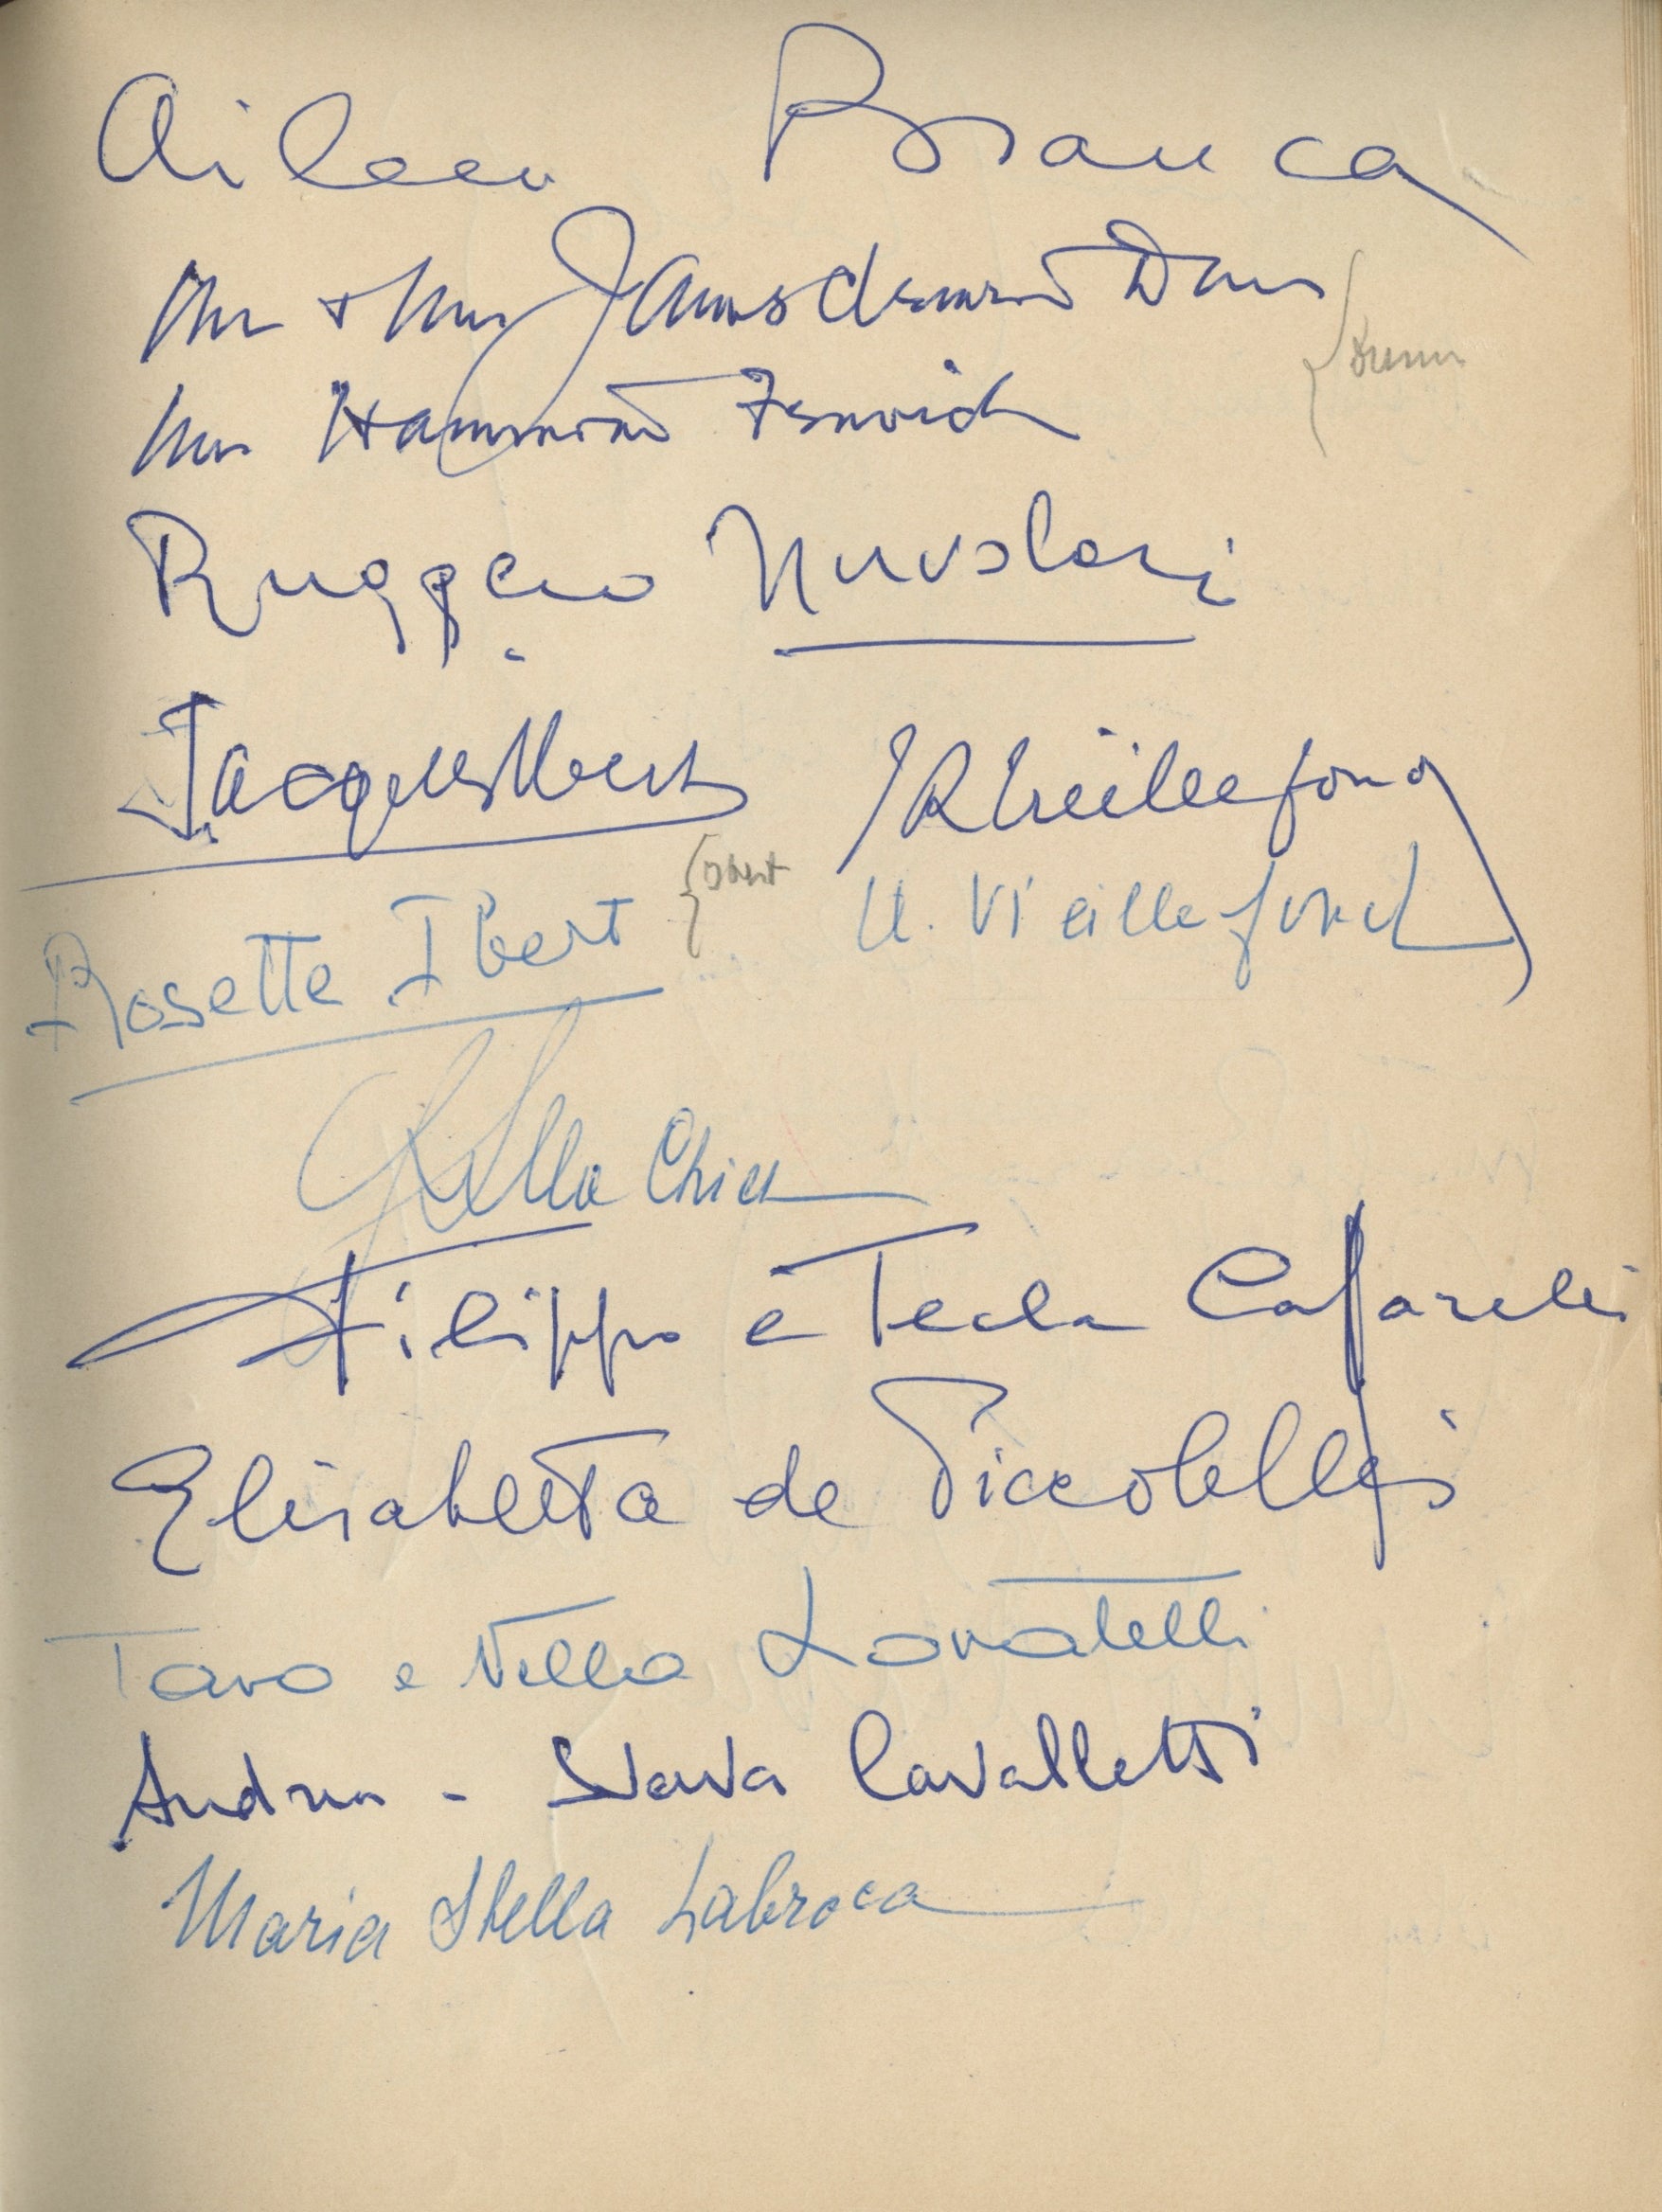 Aileen Branca
Mr & Mrs James Clement Dunn
Dunn
Mrs Hammond Fenwick
Ruggero Nuvolari
Jacques Ibert
JR Vieillefond
Rosette Ibert
Ibert
U. Vieillefond
Chiesa
Filippo e Tecla Cafarelli
Elisabetta de Piccolellis
Tavo e Nella Lovatelli
Andrea - Slava Cavalletti
Maria Stella Labroca